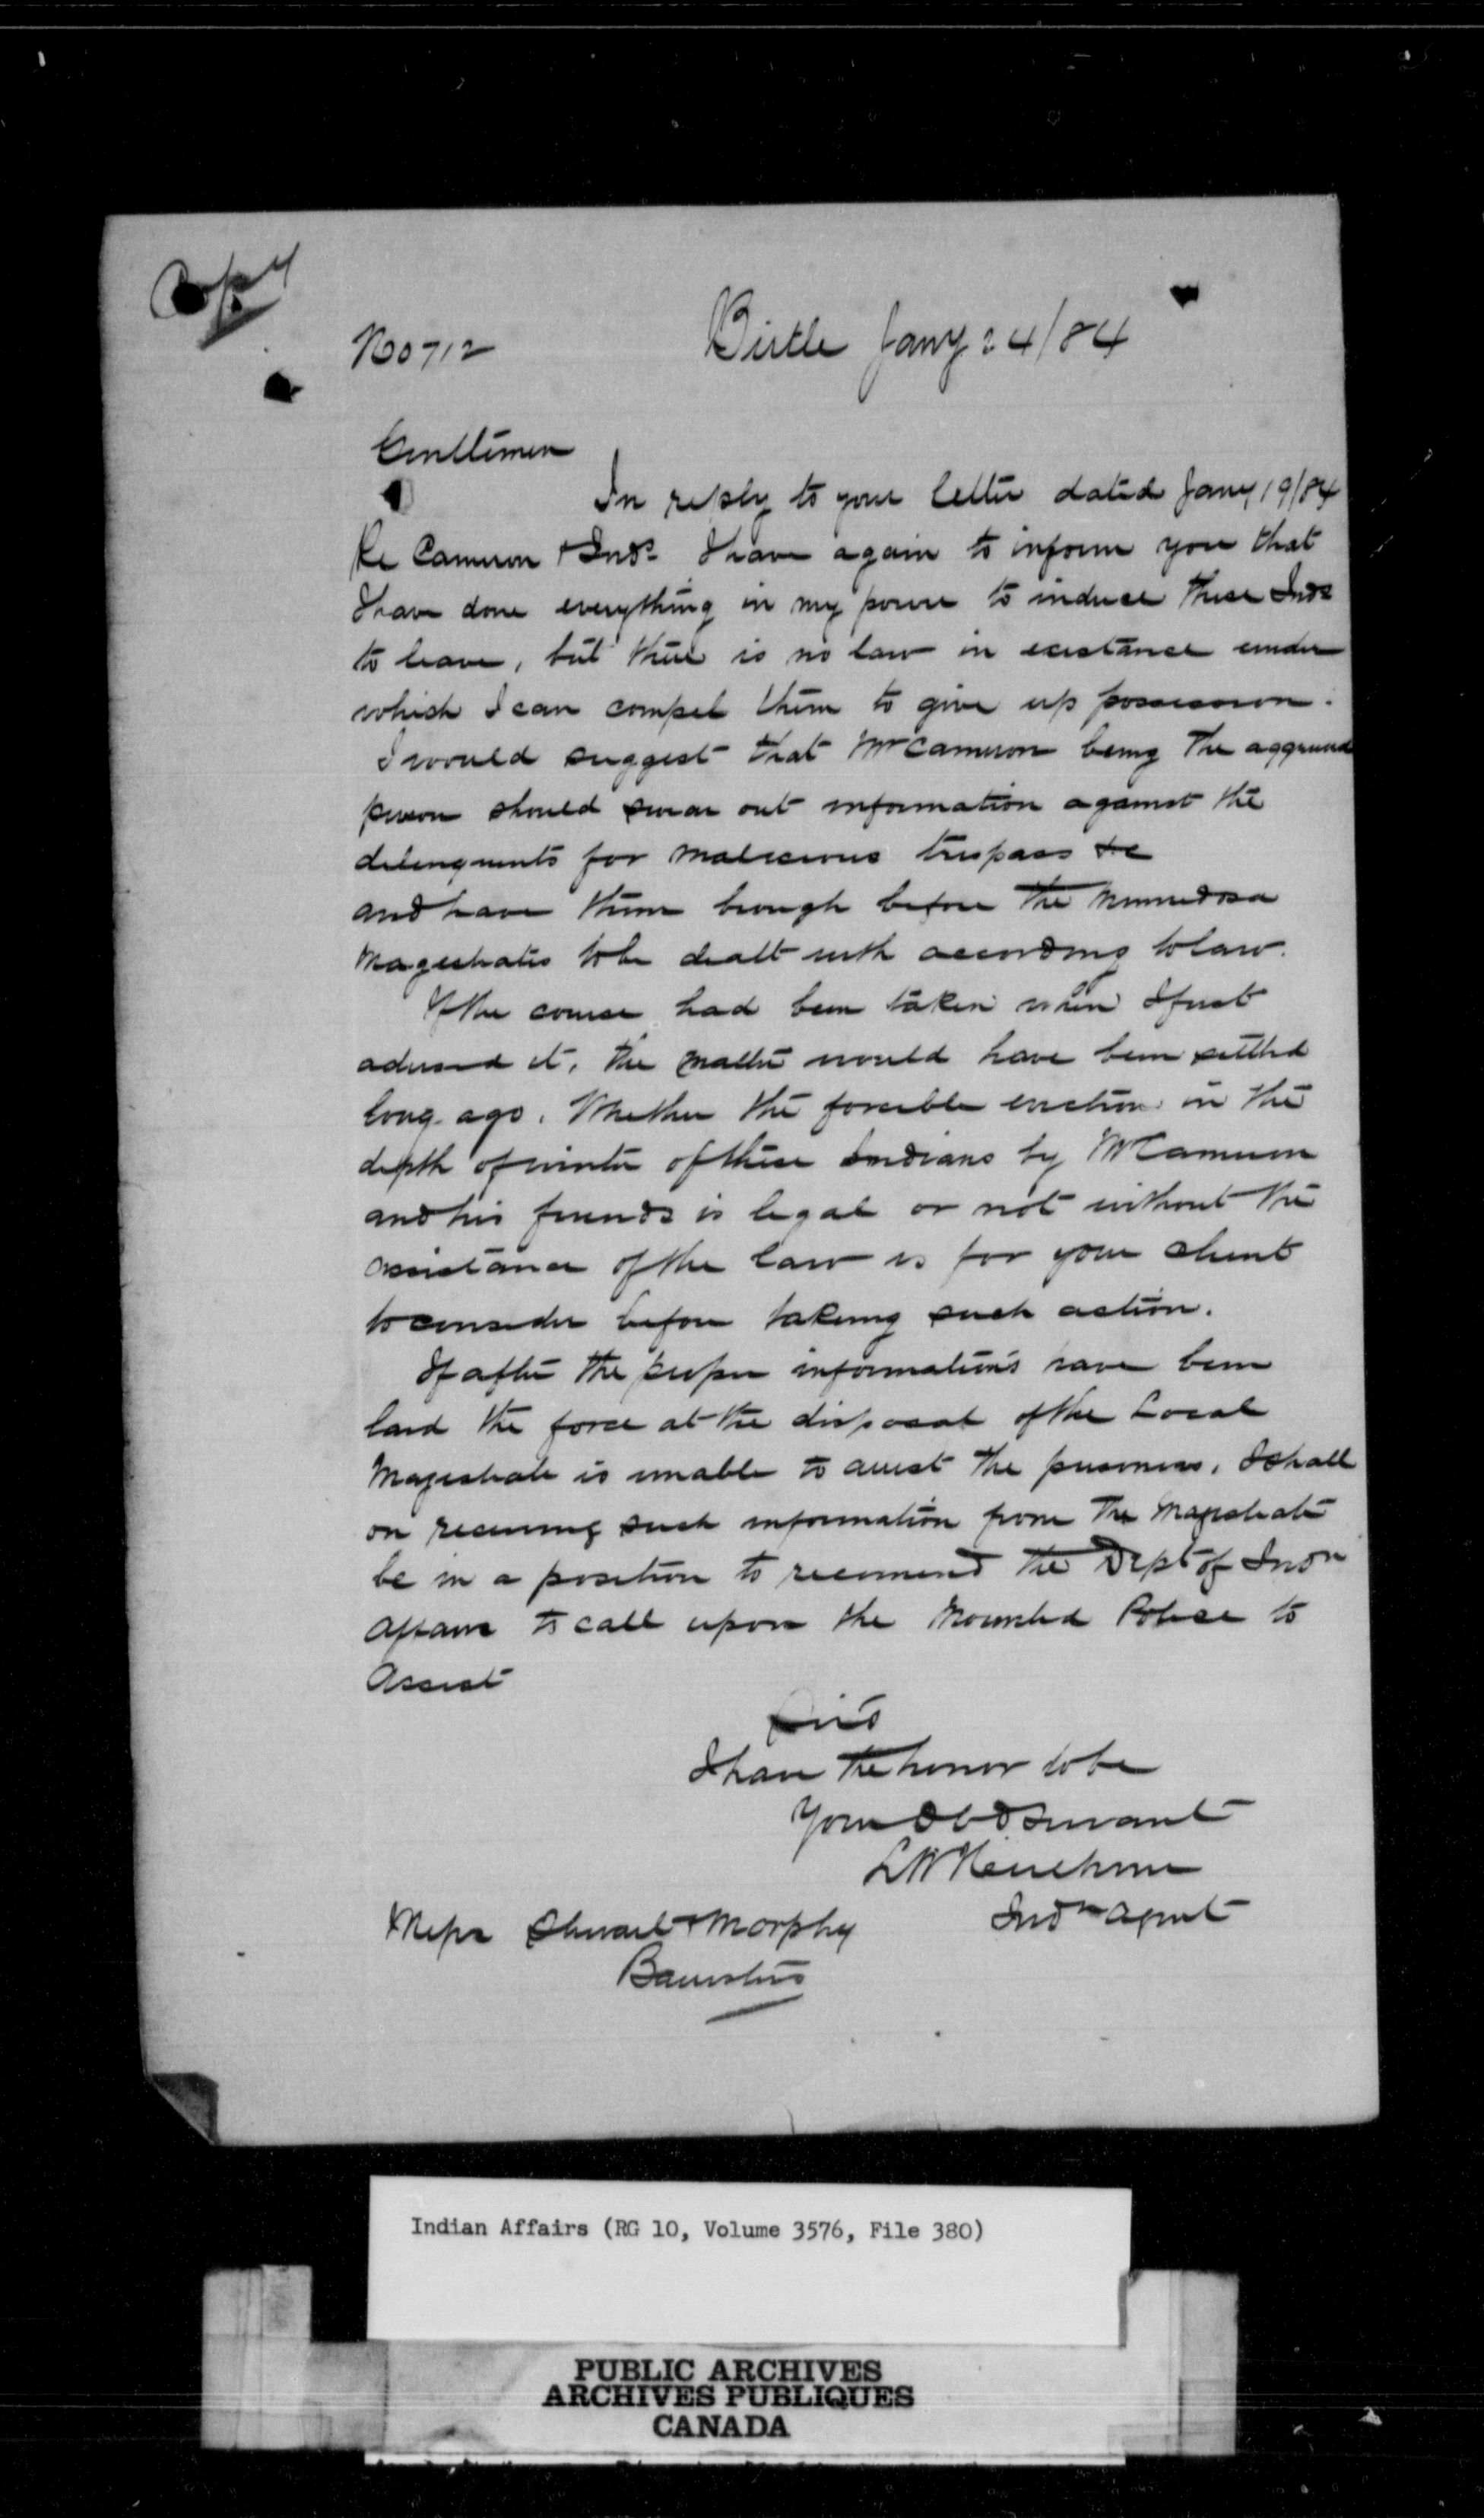 Copy
No 712
Birtle Jany 24/84
Gentlemen
In reply to your letter dated Jany 19/84
Re Cameron & Inds I have again to inform you that
I have done everything in my power to induce these Inds
to leave, but there is no law in existance under
which I can compel them to give up possession.
I would suggest that Mr Cameron being the aggrieved
person should swear out information against the
delinquents for malicious trespass &c
and have them brough before the Minnedosa
Magistrates to be dealt with according to law.
If the course had been taken when I first
advised it, the matter would have been settled
long ago. Whether the forcible eviction in the
depth of winter of these Indians by Mr Cameron
and his friends is legal or not without the
assistance of the law is for your client
to consider before taking such action.
If after the proper informations have been
laid the force at the disposal of the Local
Magistrate is unable to arrest the prisoners, I shall
on receiving such information from the Magistrate
be in a position to recomend the Dept of Indn
Affairs to call upon the Mounted Police to
Assist
I have the honor to be
Your Obd Servant
L W Herchmer
Indn Agent
Messrs Stewart & Morphy
Barristers
Indian Affairs (RG 10, Volume 3576, File 380)
PUBLIC ARCHIVES
ARCHIVES PUBLIQUES
CANADA